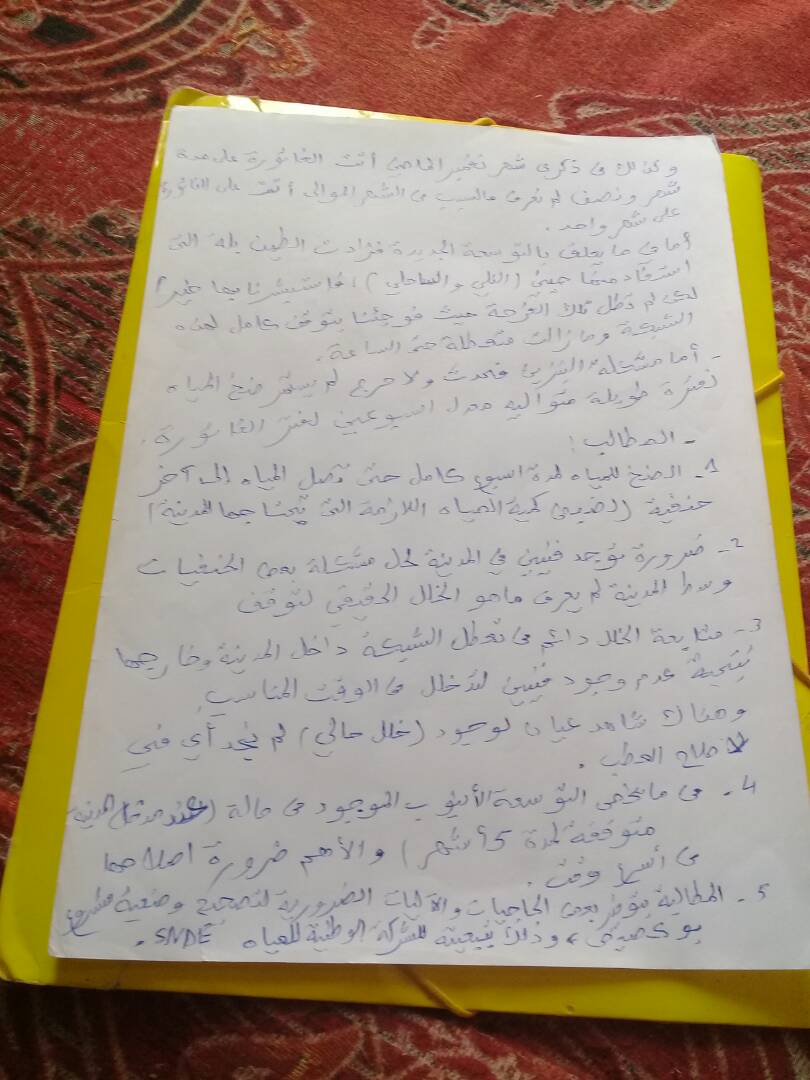 وكذلك في ذكرى شهر نوفمبر الماضي أتت الفاتورة على مدة
شهر ونصف لم نعرف مالسبب في الشهر الموالي أتت على الفاتورة
على شهر واحد.
أما في ما يعلق بالتوسعة الجديدة فزادت الطين بلة التي
استفاد منها حيي (التلي والساحلي)، فاستبشرنا بها خيرا
لكن لم تطل تلك الفرحة حيث فوجئنا بتوقف كامل لهذه
الشبكة وما زالت متعطلة حتى الساعة.
- أما مشكلة فحدث ولا حرج لم يستمر ضخ المياه
لفترة طويلة متواليه مدة اسبوعين لفتر الفاتورة.
- المطالب:
1- الضخ للمياه لمدة اسبوع كامل حتى تصل المياه إلى آخر
حنفية (لضمن كمية المياه اللازمة التي تحتاجها المدينة)
2- ضرورة توجد فنيين في المدينة لحل مشكلة بعض الحنفيات
وسط المدينة لم يعرف ماهو الخلل الحقيقي لتوقف
3- متابعة الخلل دائم في تعطل الشبكة داخل المدينة وخارجها
نتيجة عدم وجود فنيين لتدخل في الوقت المناسب
وهناك شاهد عيان لوجود (خلل حالي) لم نجد أي فني
لاصلاح العطب.
4- في ما يخص التوسعة الأنبوب الموجود في حالة (عند مدخل المدينة
متوقفة لمدة 5 أشهر) والأهم ضرورة اصلاحها
في أسرع وقت.
5- المطالبة بتوفر بعض الحاجيات والآليات الضرورية لتصحيح وضعية مشروع
، وذلك بتبعيته للشركة الوطنية للمياه SNDE.